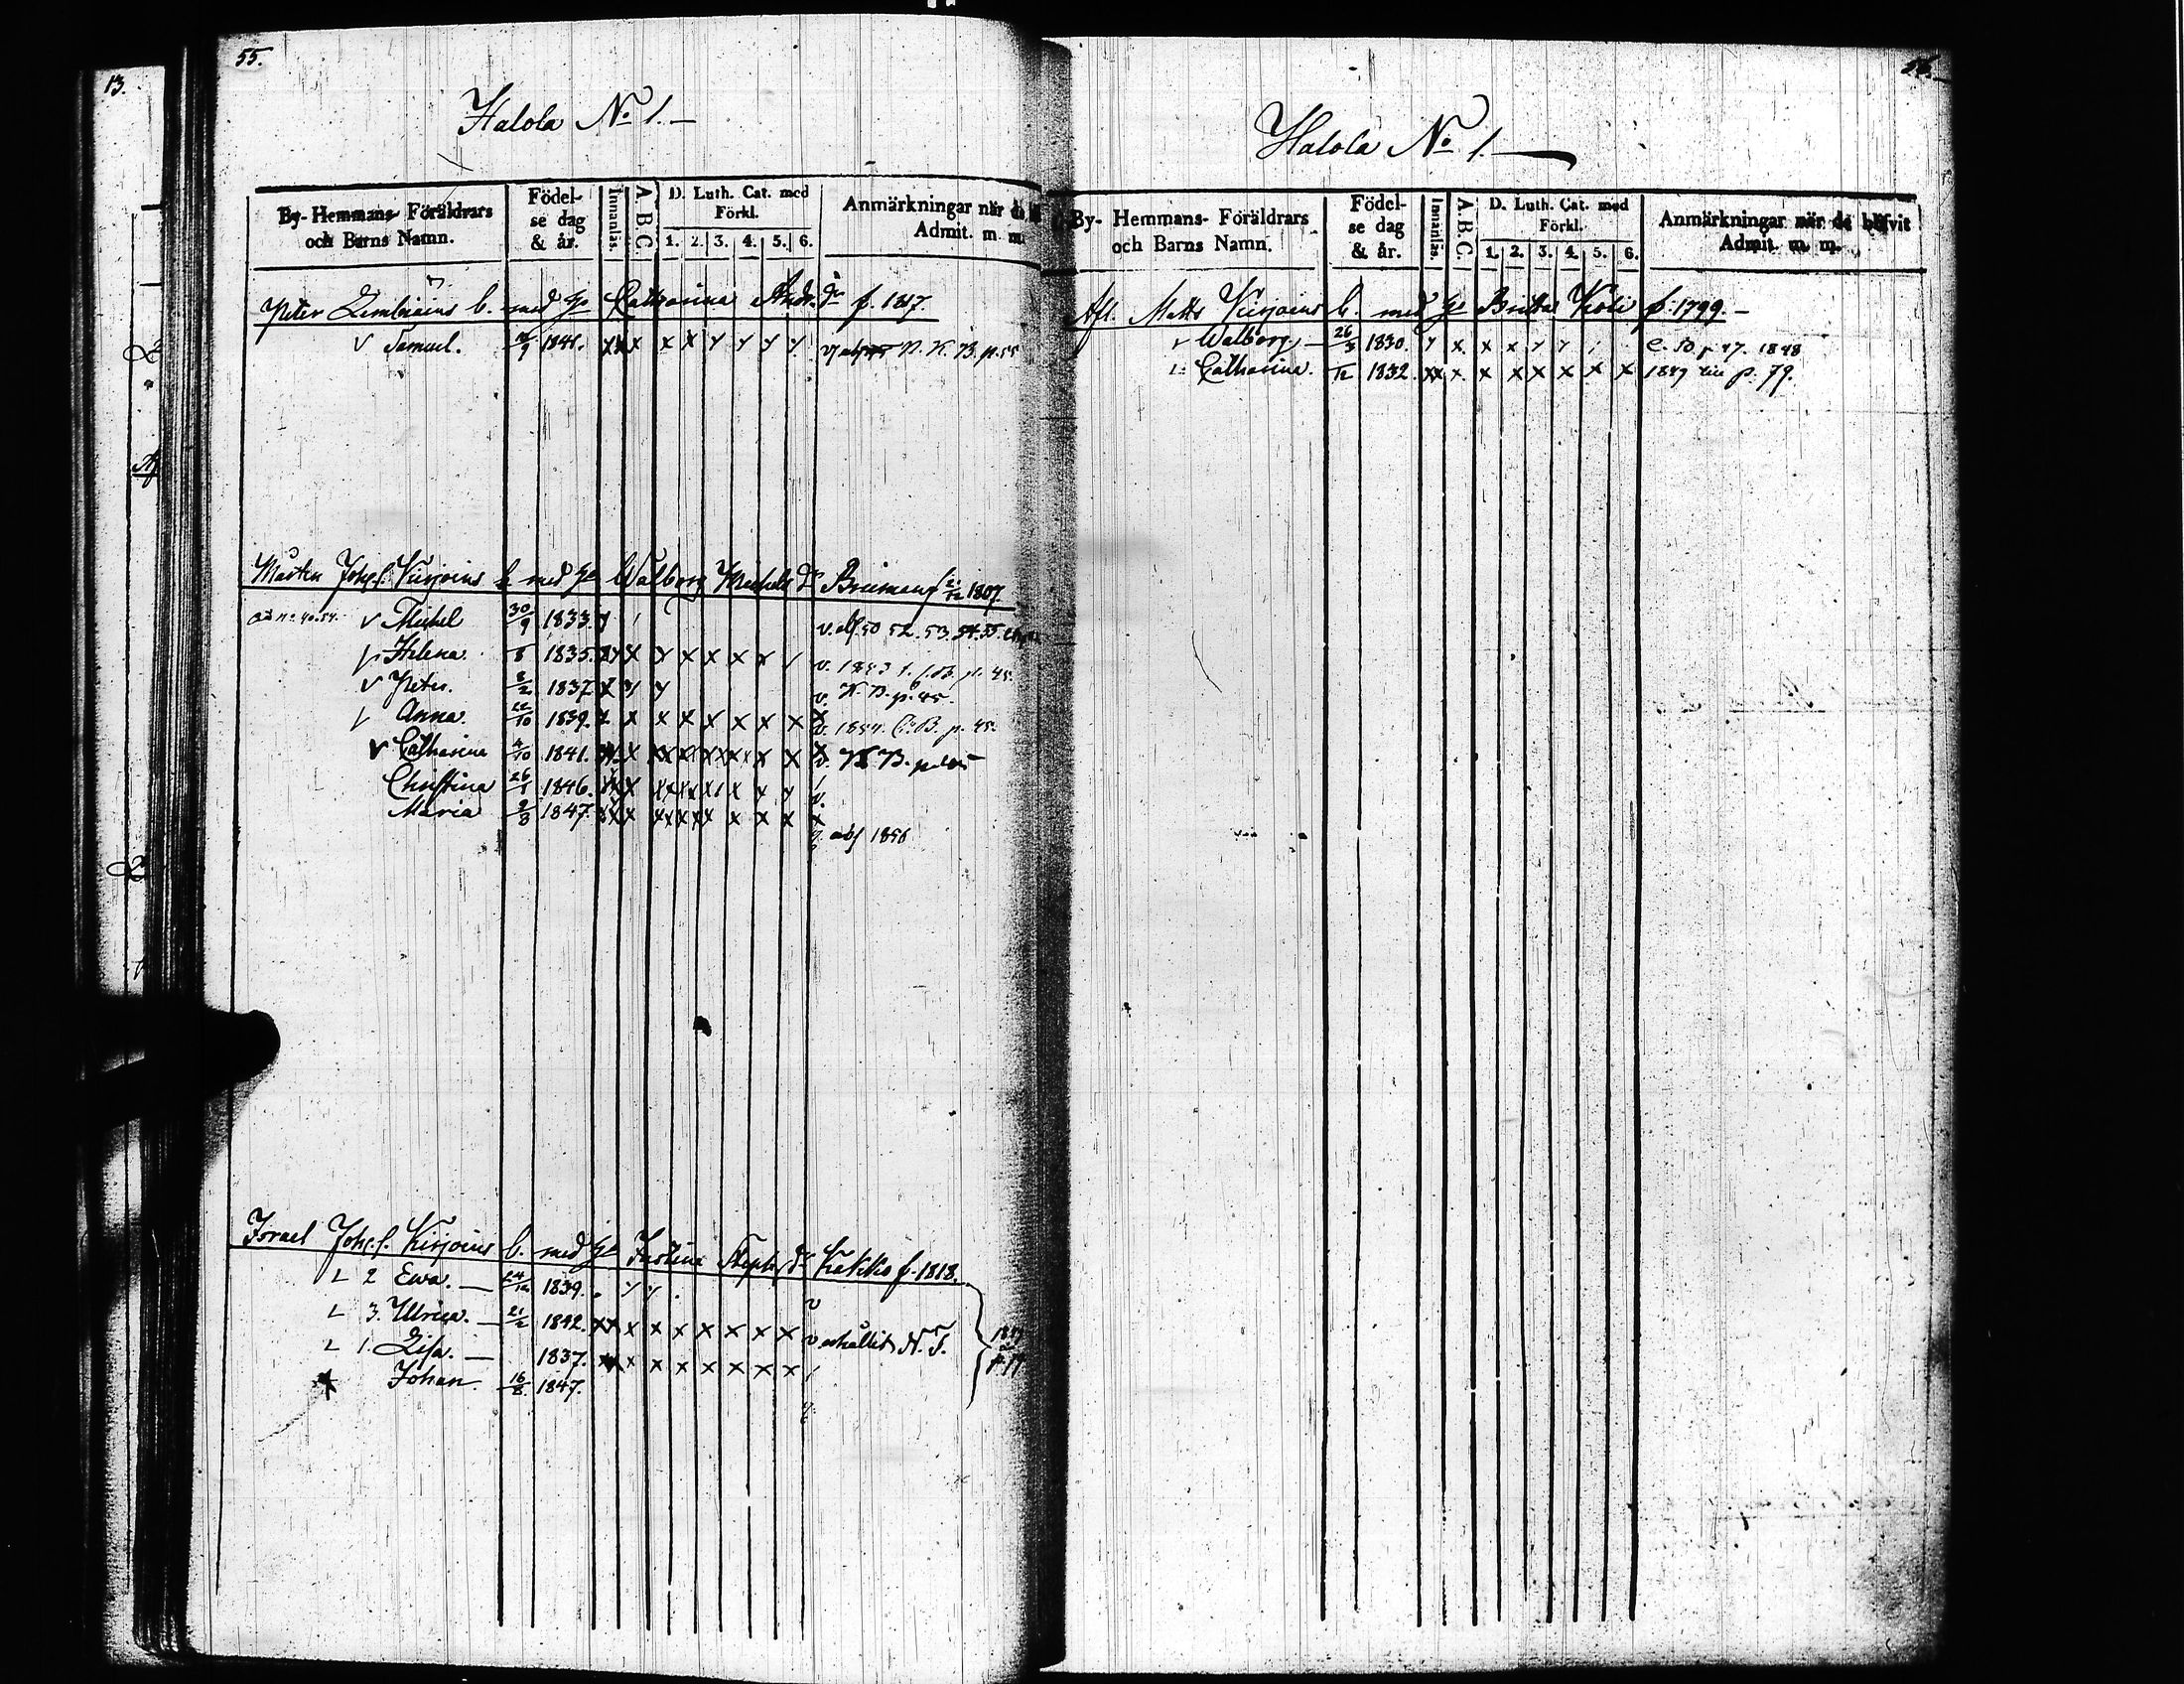 13.
55.
Halola No 1.
By- Hemmans- Föräldrars och Barns Namn.
Födelse dag & år.
Innanläs.
A.B.C.
D. Luth. Cat. med Förkl.
1. 2. 3. 4. 5. 6.
Anmärkningar när
Admit. m. m.
Peter b. med Catharina Andr. dr f. 1817.
v Samuel. 1841. x x x x x y y y y K. B. p. 55
Mårten Johs. Kirjoins b. med Walborg Michels dr 1807.
v Michel 30/9 1833. y v. abs. 50 52. 53. 54. 55.
Helena. 1835. x y x y x x x x v. 1853 p. 45.
v Peter. 8/2 1837 x y y v. K. B. p. 45.
Anna. 22/10 1839. x x x x x x x x x v. 1854. C. B. p. 45.
v Catharina 4/10 1841. v. K B. p.
Christina 26/1 1846. v.
Maria 9/8 1847. abs 1856
Israel Johs. Kirjoins b. med Justina Steph. dr Kakko f. 1818.
2 Ewa. 24/12 1839. y y v
3. Ulrica. 21/2 1842. x x x x x x x x x v erhållit N. T.
1. Lisa. 1837. x x x x x x x x
Johan. 16/8. 1847.
56.
Halola No 1.
By- Hemmans- Föräldrars och Barns Namn.
Födelse dag & år.
Innanläs.
A.B.C.
D. Luth. Cat. med Förkl.
1. 2. 3. 4. 5. 6.
Anmärkningar när de blifvit
Admit. m. m.
Afl. Matts Kirjoins b. med Britta f. 1799.
Walborg. 26/3 1830. y x. x x y y C. B. p 47. 1848
Catharina. 1832. xx x. x x x x x x 1849 p. 79.